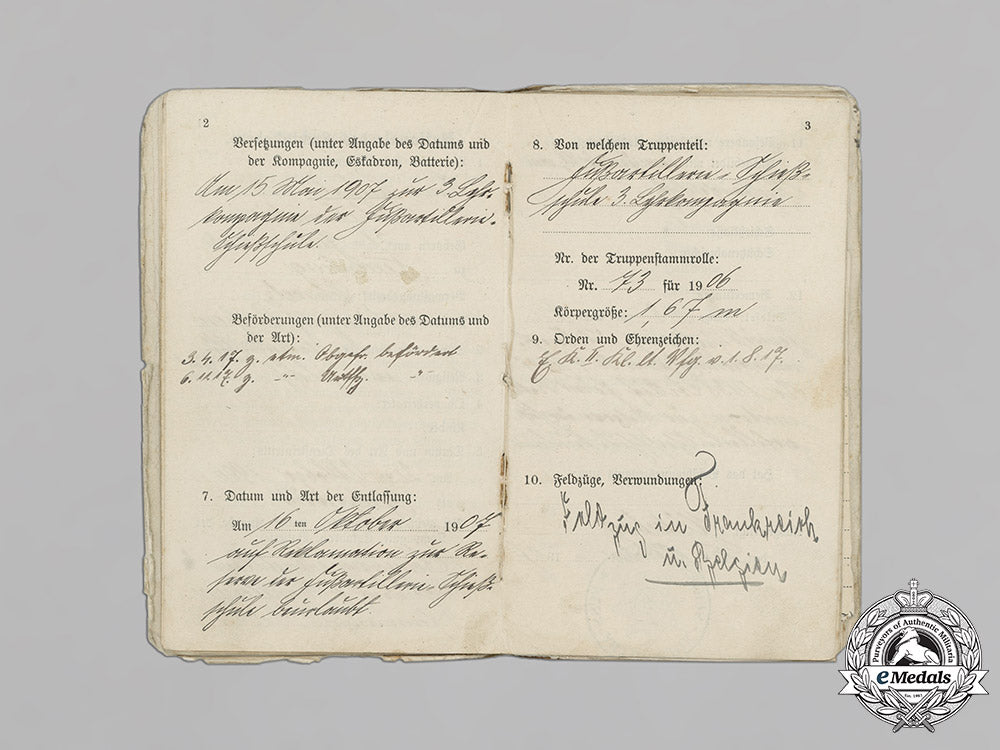 2
Versetzungen (unter Angabe des Datums und
der Kompagnie, Eskadron, Batterie):
Am 15 Mai 1907 zur 3. Lehr-
kompagnie der Fußartillerie-
Schießschule.
Beförderungen (unter Angabe des Datums und
der Art):
3. 4. 17. z. etm. Obgefr. befördert
6. 11. 17. z. -"- Untffz. -"-
7. Datum und Art der Entlassung:
Am 16 ten Oktober 1907
auf Reklamation zur Re-
serve der Fußartillerie-Schieß-
schule beurlaubt.
3
8. Von welchem Truppenteil:
Fußartillerie-Schieß-
schule 3. Lehrkompagnie
Nr. der Truppenstammrolle:
Nr. 73 für 1906
Körpergröße: 1,67 m
9. Orden und Ehrenzeichen:
E. K. II. Kl. lt. Vfg. v. 1. 8. 17.
10. Feldzüge, Verwundungen:
Feldzug in Frankreich
u. Belgien
Purveyors of Authentic Militaria
eMedals